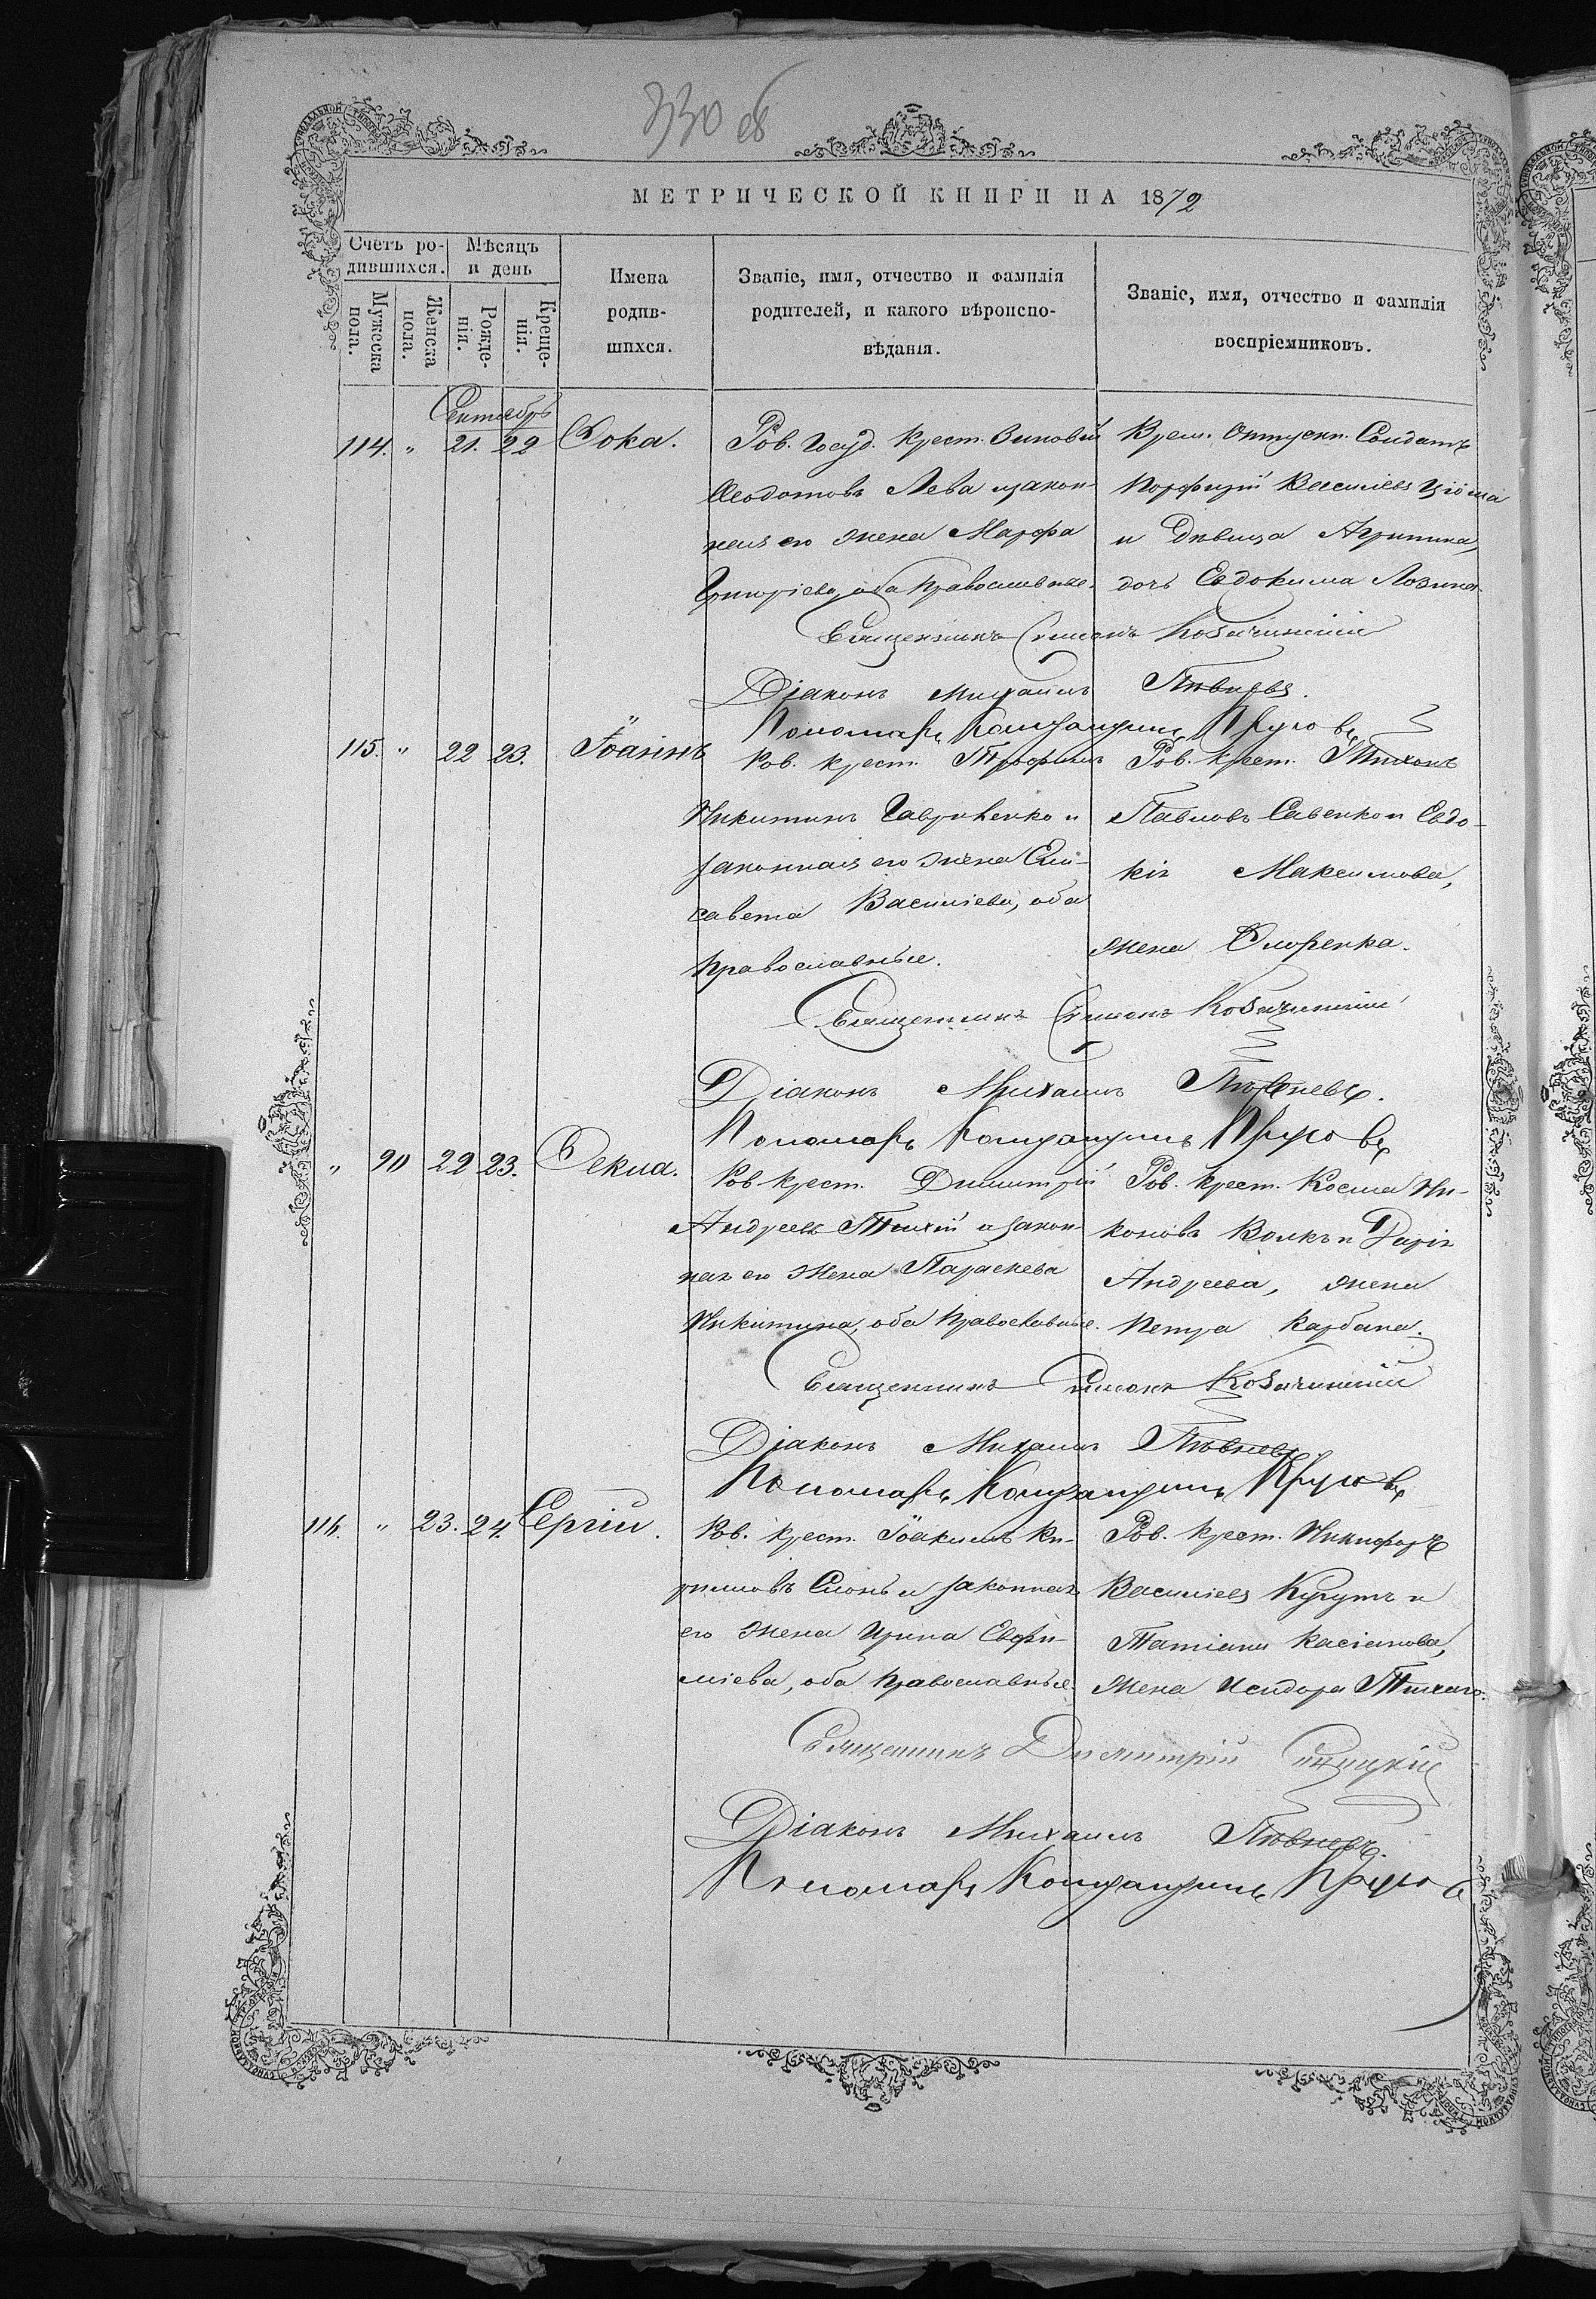 330 об
МЕТРИЧЕСКОЙ КНИГИ НА 1872
Счетъ родившихся.
Мѣсяцъ и день
Мужеска пола.
Женска пола.
Рожденія.
Крещенія.
Имена родившихся.
Званіе, имя, отчество и фамилія
родителей, и какого вѣроиспо-
вѣданія.
Званіе, имя, отчество и фамилія
воспріемниковъ.
Сентябрь
114. " 21. 22 Ѳока.
Ров. Госуд. крест. Зиновій
Ѳеодотовъ Лева и закон-
ная его жена Марфа
Григоріева, оба православные.
Врем. Отпускн. Солдатъ
Порфирій Васильевъ
и дѣвица Агрипина,
дочь Евдокима
Священникъ Симонъ
Діаконъ Михаилъ Пѣвневъ.
Пономарь Константинъ
115. " 22 23. Іоаннъ
Ров. крест. Трофимъ
Никитинъ Гавриленко и
законная его жена Ели-
савета Василіева, оба
православные.
Ров. крест. Тихонъ
Павловъ Савенко и Евдо-
кія Максимова,
жена
Священникъ Симонъ
Діаконъ Михаилъ Пѣвневъ.
Пономарь Константинъ
" 90 22 23. Ѳекла.
Ров. крест. Димитрій
Андреевъ Тихій и закон-
ная его жена Параскева
Никитина, оба православные.
Ров. крест. Косма Ни-
коновъ Волкъ и Дарія
Андреева, жена
Петра Карбана.
Священникъ Симонъ
Діаконъ Михаилъ Пѣвневъ
Пономарь Константинъ
116. " 23. 24. Сергій.
Ров. крест. Іоакимъ Ки-
риловъ Слонь и законная
его жена Ирина Евфи-
міева, оба православные.
Ров. крест. Никифоръ
Василіевъ и
Татіана Касіанова,
жена Исидора Тихаго.
Священникъ Димитрій
Діаконъ Михаилъ Пѣвневъ.
Пономарь Константинъ